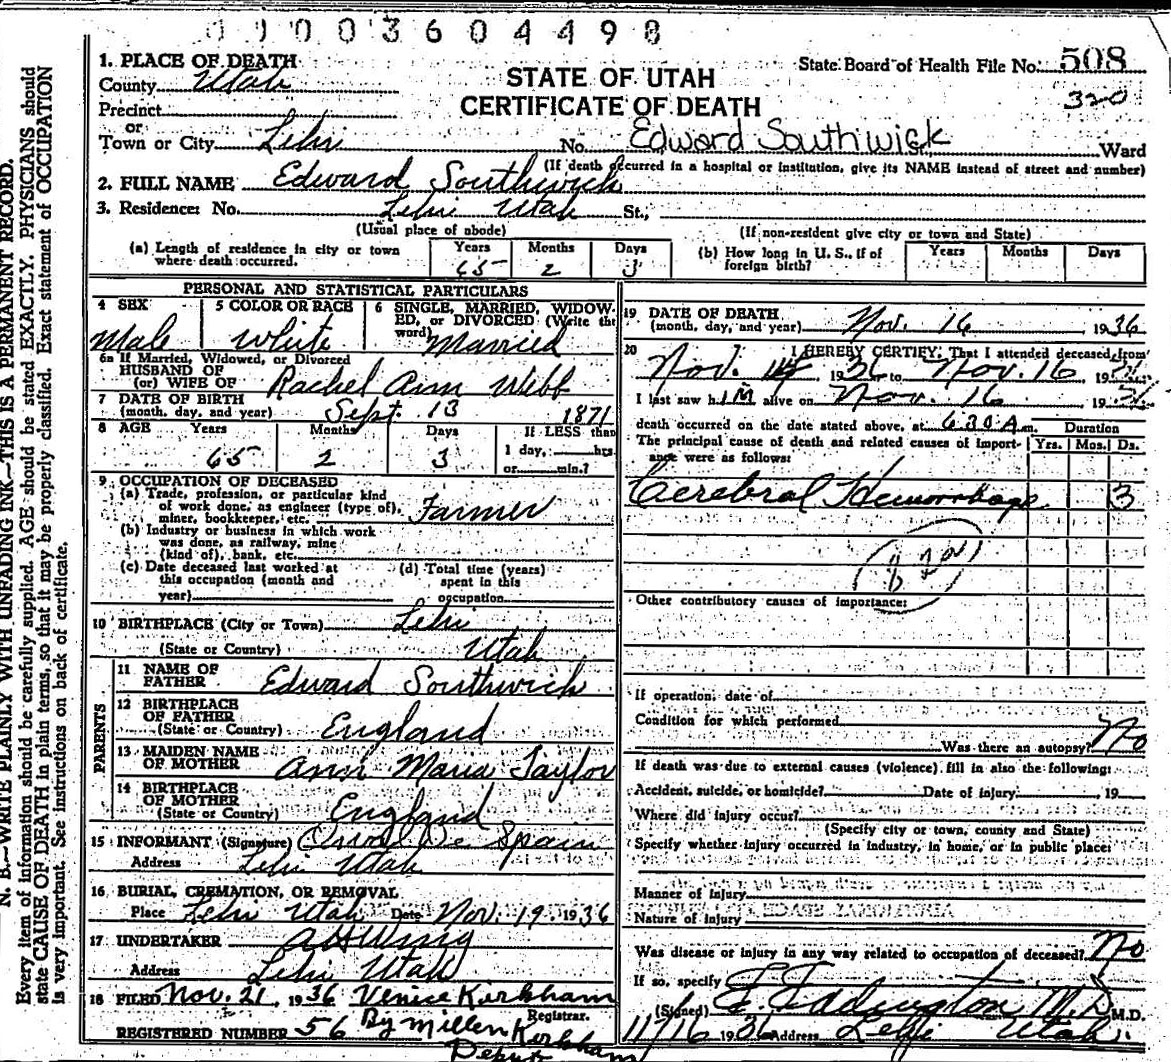 0 9 0 0 3 6 0 4 4 9 8
N. B.—WRITE PLAINLY WITH UNFADING INK—THIS IS A PERMANENT RECORD.
Every item of information should be carefully supplied. AGE should be stated EXACTLY. PHYSICIANS should
state CAUSE OF DEATH in plain terms, so that it may be properly classified. Exact statement of OCCUPATION
is very important. See instructions on back of certificate.
1. PLACE OF DEATH
County Utah
Precinct
or
Town or City Lehi
STATE OF UTAH
CERTIFICATE OF DEATH
State Board of Health File No. 508
320
No. Edward Southwick Ward
(If death occurred in a hospital or institution, give its NAME instead of street and number)
2. FULL NAME Edward Southwick
3. Residence: No. Lehi Utah St.,
(Usual place of abode)
(If non-resident give city or town and State)
(a) Length of residence in city or town where death occurred. Years 65 Months 2 Days 3
(b) How long in U. S., if of foreign birth? Years Months Days
PERSONAL AND STATISTICAL PARTICULARS
4 SEX Male
5 COLOR OR RACE White
6 SINGLE, MARRIED, WIDOWED, or DIVORCED (Write the word) Married
6a If Married, Widowed, or Divorced
HUSBAND OF
(or) WIFE OF Rachel Ann Webb
7 DATE OF BIRTH
(month, day, and year) Sept. 13 1871
8 AGE Years 65 Months 2 Days 3 If LESS than 1 day, hrs. or min.?
9 OCCUPATION OF DECEASED
(a) Trade, profession, or particular kind
of work done, as engineer (type of),
miner, bookkeeper, etc. Farmer
(b) Industry or business in which work
was done, as railway, mine
(kind of), bank, etc.
(c) Date deceased last worked at
this occupation (month and
year)
(d) Total time (years)
spent in this
occupation
10 BIRTHPLACE (City or Town) Lehi
(State or Country) Utah
PARENTS
11 NAME OF FATHER Edward Southwick
12 BIRTHPLACE OF FATHER
(State or Country) England
13 MAIDEN NAME OF MOTHER Ann Maria Taylor
14 BIRTHPLACE OF MOTHER
(State or Country) England
15 INFORMANT (Signature) De Spain
Address Lehi Utah
16 BURIAL, CREMATION, OR REMOVAL
Place Lehi Utah Date Nov. 19 1936
17 UNDERTAKER A H Wing
Address Lehi Utah
18 FILED Nov. 21, 1936 Venice Kirkham
Registrar.
REGISTERED NUMBER 56 By Millen Kirkham
Deputy
19 DATE OF DEATH
(month, day, and year) Nov. 16 1936
20 I HEREBY CERTIFY, That I attended deceased from
Nov. 14, 1936 to Nov. 16 1936
I last saw h im alive on Nov. 16 1936
death occurred on the date stated above, at 6:30 A m. Duration
The principal cause of death and related causes of importance were as follows: Yrs. Mos. Ds.
Cerebral Hemorrhage 3
Other contributory causes of importance:
If operation, date of
Condition for which performed
Was there an autopsy? No
If death was due to external causes (violence) fill in also the following:
Accident, suicide, or homicide? Date of injury 19
Where did injury occur?
(Specify city or town, county and State)
Specify whether injury occurred in industry, in home, or in public place:
Manner of Injury
Nature of injury
Was disease or injury in any way related to occupation of deceased? No
If so, specify
(Signed) Eddington M.D. M.D.
11/16 1936 Address Lehi Utah.